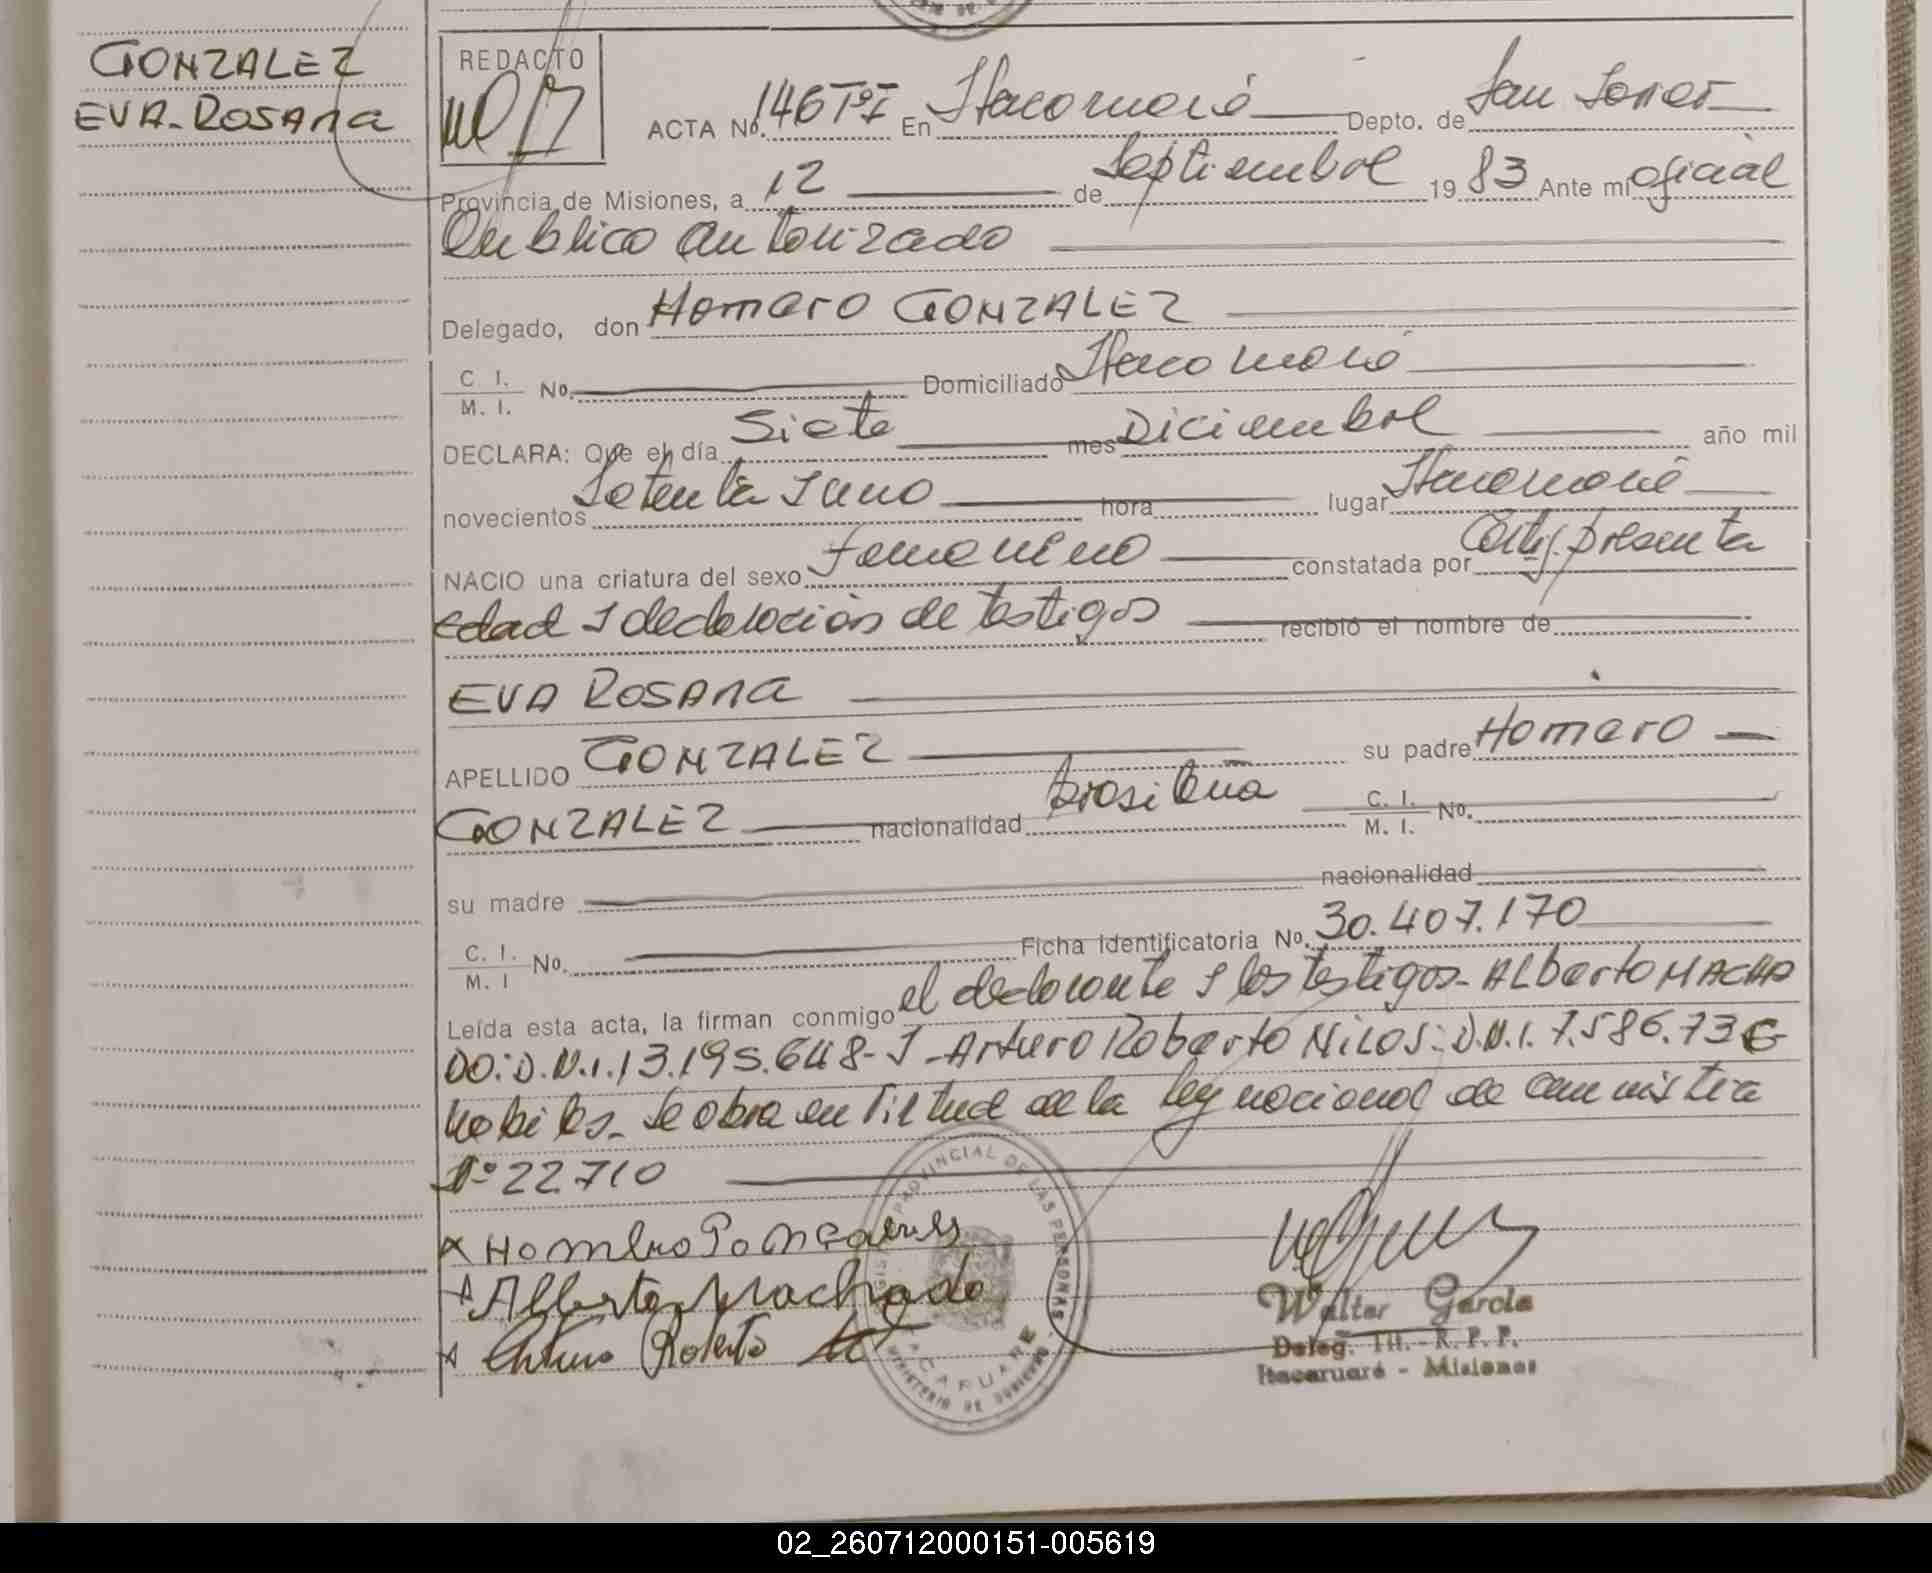 GONZALEZ
EVA-ROSANA
REDACTO
ACTA No. 146 Tº I En Itacaruaré Depto. de San Javier
Provincia de Misiones, a 12 de Septiembre 19 83 Ante mi oficial
Publico autorizado
Delegado, don Homero GONZALEZ
C. I.
M. I. No. Domiciliado Itacaruaré
DECLARA: Que el día Siete mes Diciembre año mil
novecientos Setenta y uno hora lugar Itacaruaré
NACIO una criatura del sexo femenino constatada por Certif. presunta
edad y declaración de testigos recibió el nombre de
EVA ROSANA
APELLIDO GONZALEZ su padre Homero
GONZALEZ nacionalidad brasileña C. I.
M. I. No.
su madre nacionalidad
C. I.
M. I No. Ficha Identificatoria No. 30.407.170
Leída esta acta, la firman conmigo el declarante y los testigos- ALberto MACHA
DO: D.N.I. 13.195.648- Y -Arturo Roberto : D.N.I. 7.586.736
habiles- Se obra en virtud de la ley nacional de amnistia
Nº 22.710
x Homero Gonçalves
x Alberto Machado
x Arturo Roberto
PROVINCIAL DE LAS PERSONAS
ITACARUARE
MINISTERIO DE GOBIERNO
Walter García
Deleg. Tit. - R. P. P.
Itacaruaré - Misiones
02_260712000151-005619